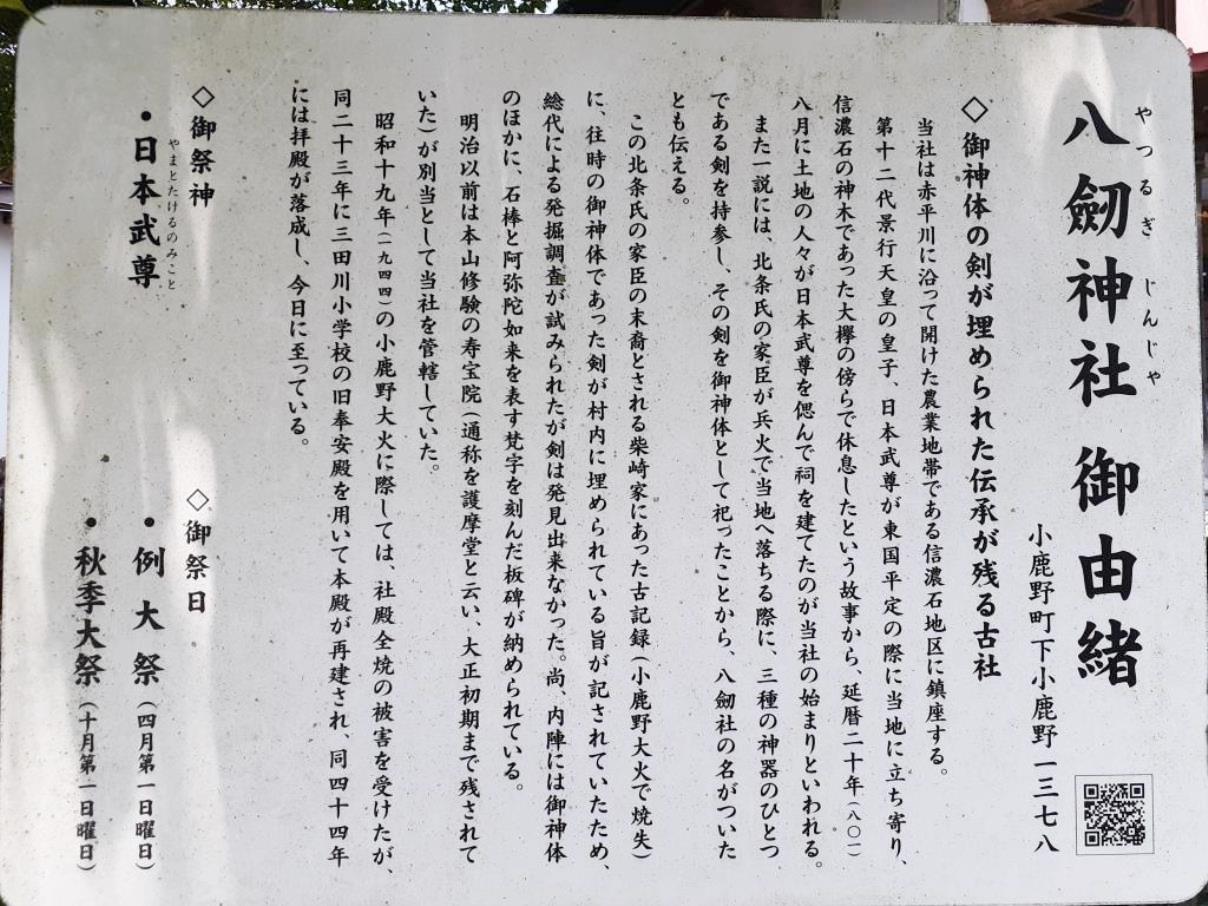 八劔神社 御由緒
やつるぎ じんじゃ
小鹿野町下小鹿野一三七八
◇御神体の剣が埋められた伝承が残る古社
当社は赤平川に沿って開けた農業地帯である信濃石地区に鎮座する。
第十二代景行天皇の皇子、日本武尊が東国平定の際に当地に立ち寄り、
信濃石の神木であった大欅の傍らで休息したという故事から、延暦二十年(八〇一)
八月に土地の人々が日本武尊を偲んで祠を建てたのが当社の始まりといわれる。
また一説には、北条氏の家臣が兵火で当地へ落ちる際に、三種の神器のひとつ
である剣を持参し、その剣を御神体として祀ったことから、八劔社の名がついた
とも伝える。
この北条氏の家臣の末裔とされる柴崎家にあった古記録(小鹿野大火で焼失)
に、往時の御神体であった剣が村内に埋められている旨が記されていたため、
総代による発掘調査が試みられたが剣は発見出来なかった。尚、内陣には御神体
のほかに、石棒と阿弥陀如来を表す梵字を刻んだ板碑が納められている。
明治以前は本山修験の寿宝院(通称を護摩堂と云い、大正初期まで残されて
いた)が別当として当社を管轄していた。
昭和十九年(一九四四)の小鹿野大火に際しては、社殿全焼の被害を受けたが、
同二十三年に三田川小学校の旧奉安殿を用いて本殿が再建され、同四十四年
には拝殿が落成し、今日に至っている。
◇御祭神
・日本武尊
やまとたけるのみこと
◇御祭日
・例大祭(四月第一日曜日)
・秋季大祭(十月第一日曜日)